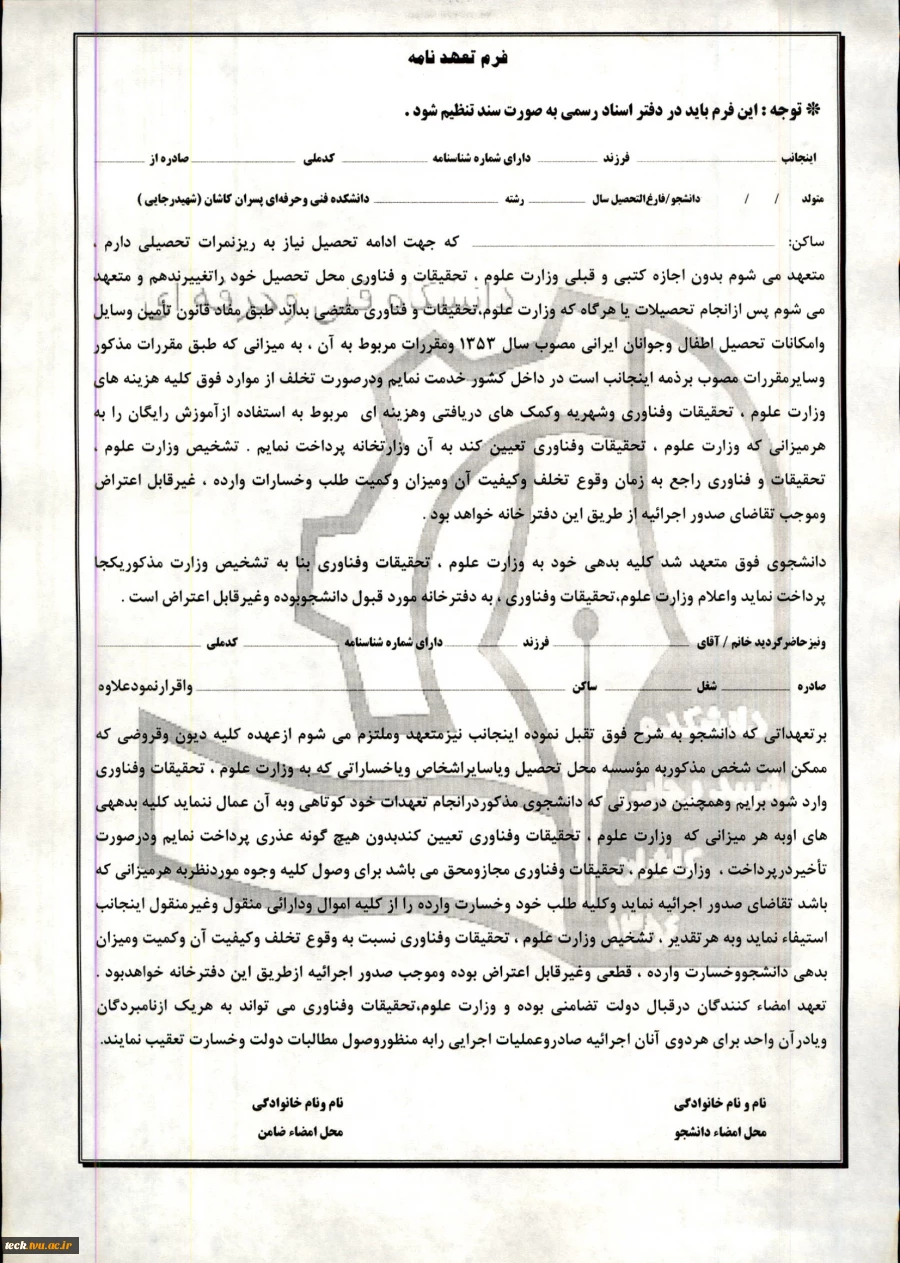 فرم تعهد نامه
❊ توجه : این فرم باید در دفتر اسناد رسمی به صورت سند تنظیم شود .
اینجانب ................ فرزند ................ دارای شماره شناسنامه ................ کدملی ................ صادره از ................
متولد / / دانشجو/فارغ‌التحصیل سال ................ رشته ................ دانشکده فنی وحرفه‌ای پسران کاشان (شهیدرجایی )
ساکن: ................ که جهت ادامه تحصیل نیاز به ریزنمرات تحصیلی دارم ،
متعهد می شوم بدون اجازه کتبی و قبلی وزارت علوم ، تحقیقات و فناوری محل تحصیل خود راتغییرندهم و متعهد
می شوم پس ازانجام تحصیلات یا هرگاه که وزارت علوم،تحقیقات و فناوری مقتضی بداند طبق مفاد قانون تأمین وسایل
وامکانات تحصیل اطفال وجوانان ایرانی مصوب سال ۱۳۵۳ ومقررات مربوط به آن ، به میزانی که طبق مقررات مذکور
وسایرمقررات مصوب برذمه اینجانب است در داخل کشور خدمت نمایم ودرصورت تخلف از موارد فوق کلیه هزینه های
وزارت علوم ، تحقیقات وفناوری وشهریه وکمک های دریافتی وهزینه ای مربوط به استفاده ازآموزش رایگان را به
هرمیزانی که وزارت علوم ، تحقیقات وفناوری تعیین کند به آن وزارتخانه پرداخت نمایم . تشخیص وزارت علوم ،
تحقیقات و فناوری راجع به زمان وقوع تخلف وکیفیت آن ومیزان وکمیت طلب وخسارات وارده ، غیرقابل اعتراض
وموجب تقاضای صدور اجرائیه از طریق این دفتر خانه خواهد بود .
دانشجوی فوق متعهد شد کلیه بدهی خود به وزارت علوم ، تحقیقات وفناوری بنا به تشخیص وزارت مذکوریکجا
پرداخت نماید واعلام وزارت علوم،تحقیقات وفناوری ، به دفترخانه مورد قبول دانشجوبوده وغیرقابل اعتراض است .
ونیزحاضرگردید خانم / آقای ................ فرزند ................ دارای شماره شناسنامه ................ کدملی ................
صادره ................ شغل ................ ساکن ................ واقرارنمودعلاوه
برتعهداتی که دانشجو به شرح فوق تقبل نموده اینجانب نیزمتعهد وملتزم می شوم ازعهده کلیه دیون وقروضی که
ممکن است شخص مذکوربه مؤسسه محل تحصیل ویاسایراشخاص ویاخساراتی که به وزارت علوم ، تحقیقات وفناوری
وارد شود برایم وهمچنین درصورتی که دانشجوی مذکوردرانجام تعهدات خود کوتاهی وبه آن عمال ننماید کلیه بدههی
های اوبه هر میزانی که وزارت علوم ، تحقیقات وفناوری تعیین کندبدون هیچ گونه عذری پرداخت نمایم ودرصورت
تأخیردرپرداخت ، وزارت علوم ، تحقیقات وفناوری مجازومحق می باشد برای وصول کلیه وجوه موردنظربه هرمیزانی که
باشد تقاضای صدور اجرائیه نماید وکلیه طلب خود وخسارت وارده را از کلیه اموال ودارائی منقول وغیرمنقول اینجانب
استیفاء نماید وبه هرتقدیر ، تشخیص وزارت علوم ، تحقیقات وفناوری نسبت به وقوع تخلف وکیفیت آن وکمیت ومیزان
بدهی دانشجووخسارت وارده ، قطعی وغیرقابل اعتراض بوده وموجب صدور اجرائیه ازطریق این دفترخانه خواهدبود .
تعهد امضاء کنندگان درقبال دولت تضامنی بوده و وزارت علوم،تحقیقات وفناوری می تواند به هریک ازنامبردگان
ویادرآن واحد برای هردوی آنان اجرائیه صادروعملیات اجرایی رابه منظوروصول مطالبات دولت وخسارت تعقیب نمایند.
نام و نام خانوادگی
محل امضاء دانشجو
نام ونام خانوادگی
محل امضاء ضامن
دانشکده فنی و حرفه ای
دانشکده
tech.tvu.ac.ir